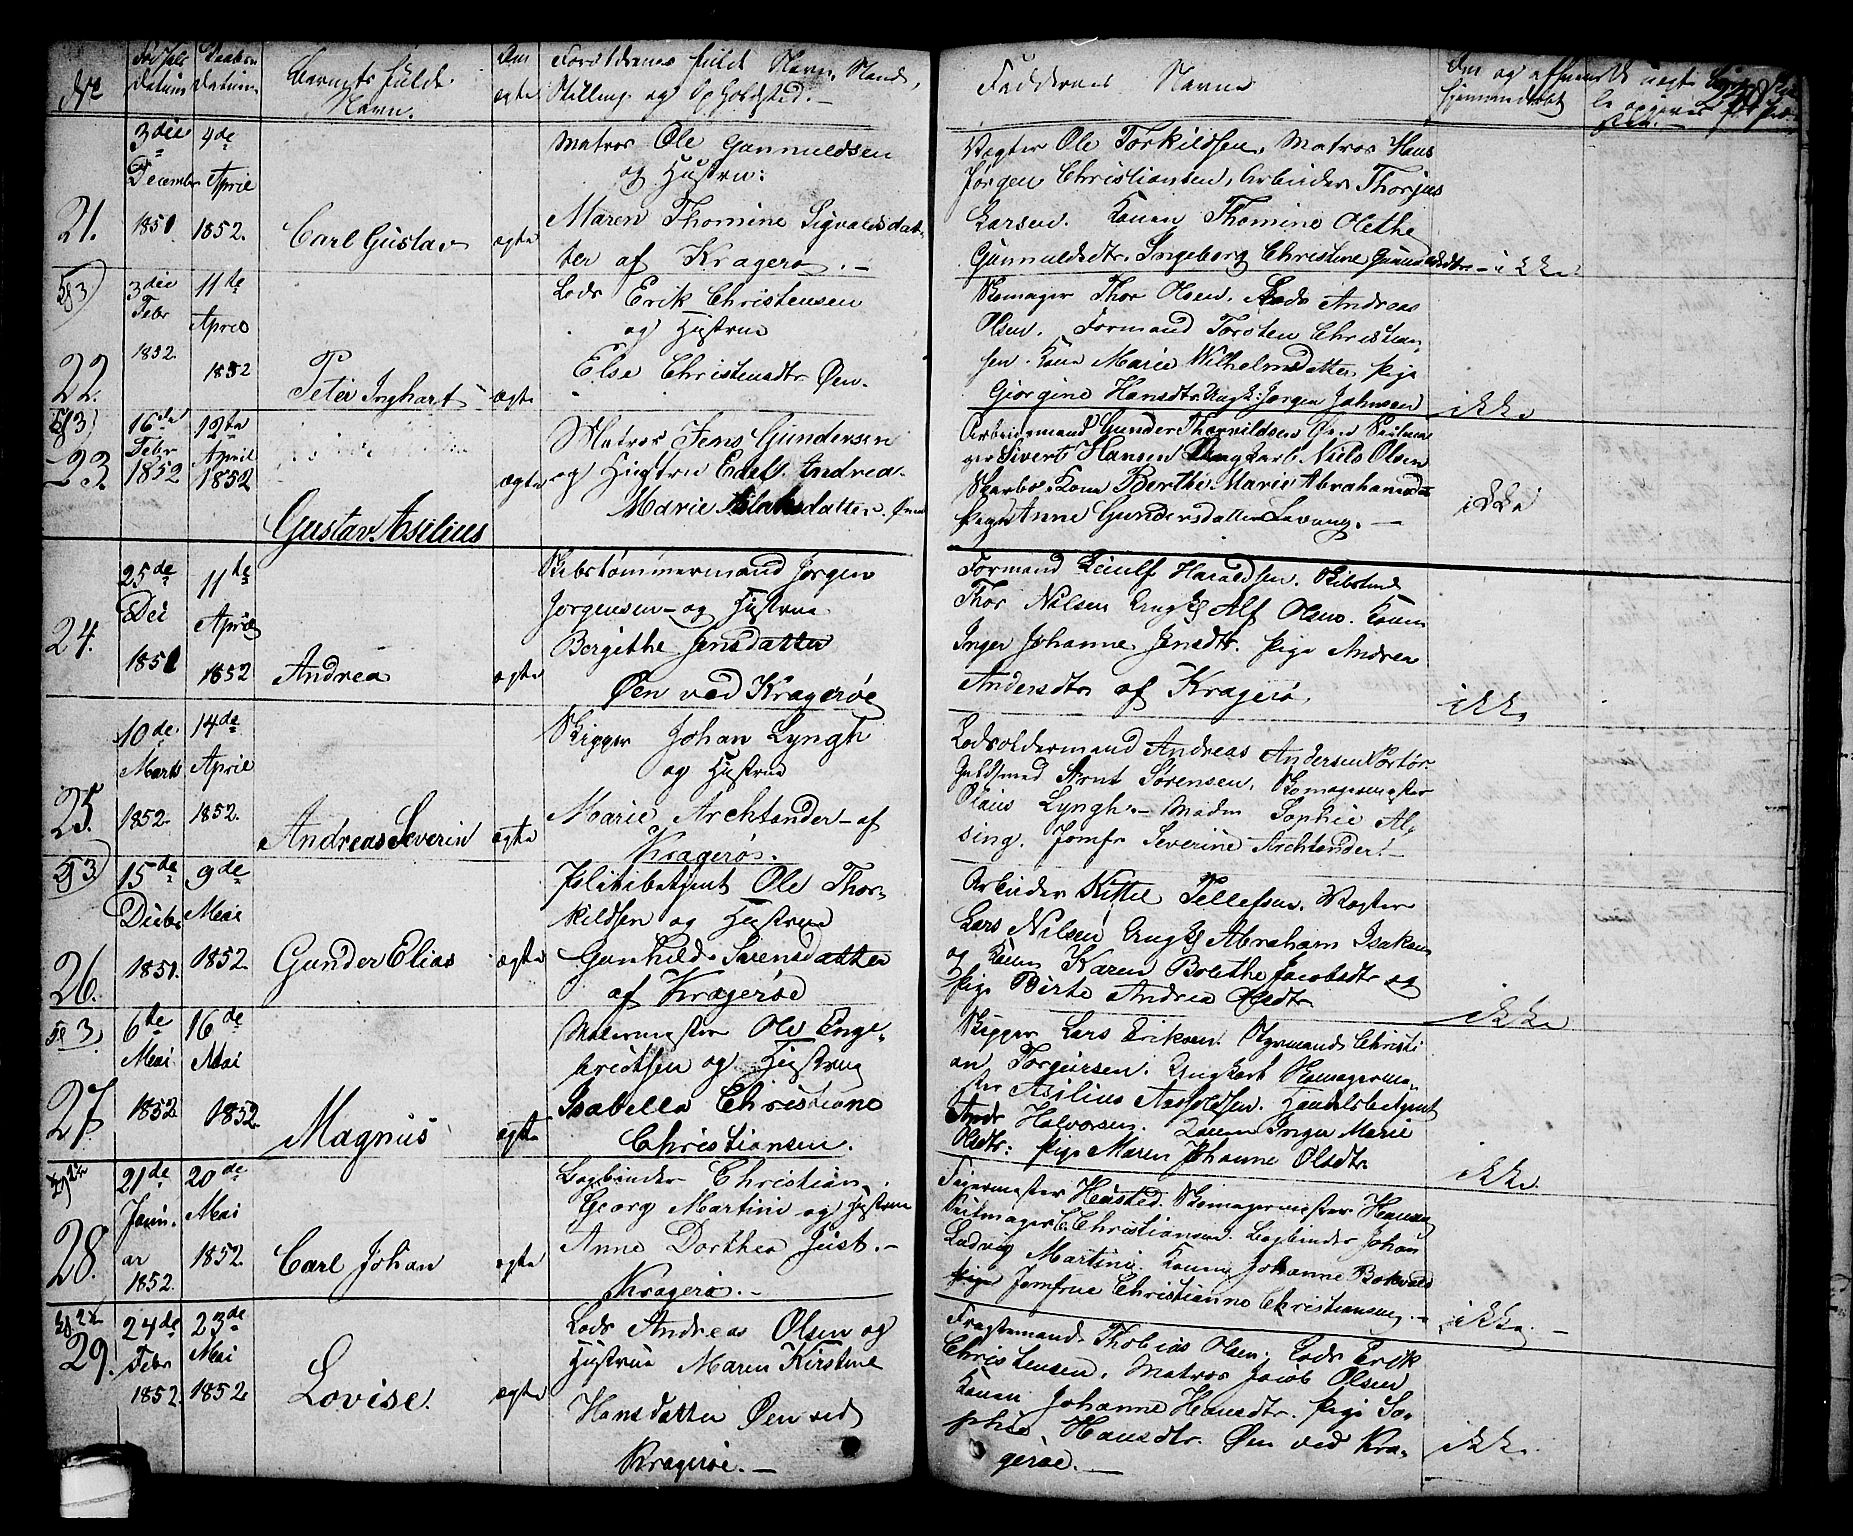 No
Fødsels Datum
Daabens Datum
Barnets fulde Navn.
Om ægte
Forældrenes fulde Navn, Stand,
Stilling og Opholdsted. —
Faddernes Navne
21.
3die
December
1851.
4de
April
1852.
Carl Gustav
ægte
Matros Ole Gunnuldsen
og Hustru:
Maren Thomine Sigvaldsdat-
ter af Kragerø. —
Vægter Ole Torkildsen, Matros Hans
Jørgen Christiansen, Arbeider Thorjus
Larsen. Konen Thomine Olethe
Gunnuldsdtr. Ingeborg Christine
ikke
22.
3die
Febr
1852.
11de
April
1852
Peter Inghart
ægte
Lods Erik Christensen
og Hustrue
Else Christensdtr Øen.
Skomager Thor Olsen, Lods Andreas
Olsen. Formand Torsten Christian-
sen. Kone Marie Wilhelmsdatter, Pige
Giorgine Hansdtr. Ungk: Jørgen Johnsen
ikke
23.
16de
Febr
1852
12te
April
1852
Gustav Asilius
ægte
Matros Jens Gundersen
og Hustru Edel Andrea
Marie
Arbeidsmand Gunder Thorvildsen Øen Seilma-
ger Sivert Hansen Ungkarl. Niels Olsen
Skarbo. Kone Berthe Marie Abrahamsd
Pige Anne Gundersdatter Levang. —
ikke
24.
25de
Dec
1851
11te
April
1852
Andrea
ægte
Skibstømmermand Jørgen
Jørgensen og Hustrue
Bergithe Jensdatter
Øen ved Kragerøe
Formand Leiulf Haraldsen.
Thor Nilsen Ungk Alf Olsen. Konen
Inger Johanne Jensdtr. Pige Andrea
Andersdtr af Kragerø.
ikke
25.
10de
Marts
1852.
14de
April
1852.
Andreas Severin
ægte
Skipper Johan Lyngh
og Hustrue
Marie Archtander af
Kragerø.
Lodsoldermand Andreas Andersen Portør
Guldsmed Arnt Sørensen, Skomagermester
Olaus Lyngh. — Madm Sophie Al-
sing. Jomfr Severine Archtander. —
26.
15de
Decbr
1851.
9de
Mai
1852.
Gunder Elias
ægte
Politibetjent Ole Thor-
kildsen og Hustrue
Gunhild Sørensdatter
af Kragerøe
Arbeider Kittil Tellefsen. Vægter
Lars Nilsen Ungk Abraham Isaksen
og Konen Karen Bolethe Jacobsdtr og
Pige Birte Andrea Olsdtr
ikke
27.
6te
Mai
1852.
16de
Mai
1852.
Magnus
ægte
Malermester Ole Enge-
bretsen og Hustrue
Isabella Christiane
Christiansen.
Skipper Lars Eriksen. Christi
an Torgersen. Ungkarl Skomagerme-
ster Asilius Halvorsen. Handelsbetjent
Halvorsen. Konen Inger Marie
Olsdtr: Pige Maren Johanne Olsdtr
ikke
28.
21de
Janu-
ar
1852.
20de
Mai
1852.
Carl Johan
ægte
Bogbinder Christian
Georg Martini og Hustrue
Anne Dorthea Just. —
Kragerø. —
Feiermester Heusted. Skomagermester Hansen
Seilmager C. Christiansen. Bogbinder Johan
Ludvig Martini. Konen Johanne
Jomfrue Christianne Christiansen. —
ikke. —
29.
24de
Febr
1852
23de
Mai
1852.
Lovise.
ægte
Lods Andreas Olsen og
Hustrue Maren Kirstine
Hansdatter Øen ved
Kragerøe. —
Fragtemand Thobias Olsen. Lods Erik
Christensen, Matros Jacob Olsen
Konen Johanne Hansdtr. Pige So-
phie Hansdtr. Øen ved Kra-
gerøe. —
ikke.